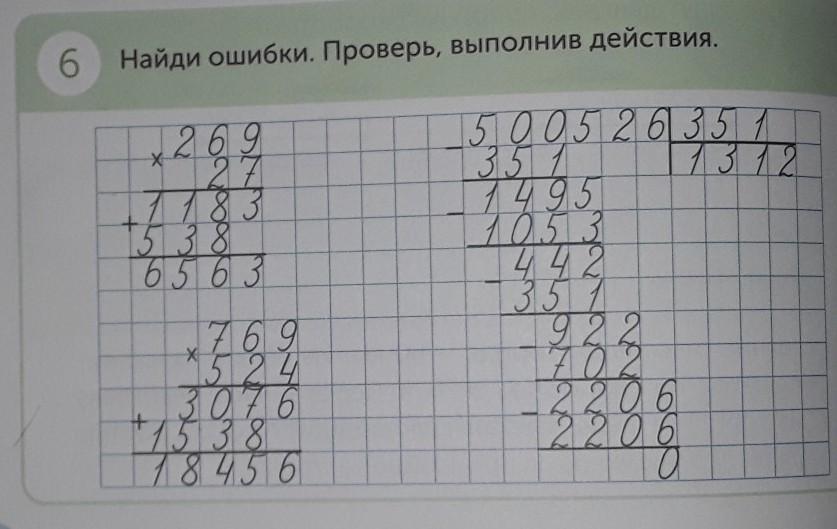 6 Найди ошибки. Проверь, выполнив действия.
× 269
27
+ 1183
538
6563
× 769
524
3076
+ 1538
18456
− 500526 351
351 1312
− 1495
1053
− 442
351
− 922
702
− 2206
2206
0